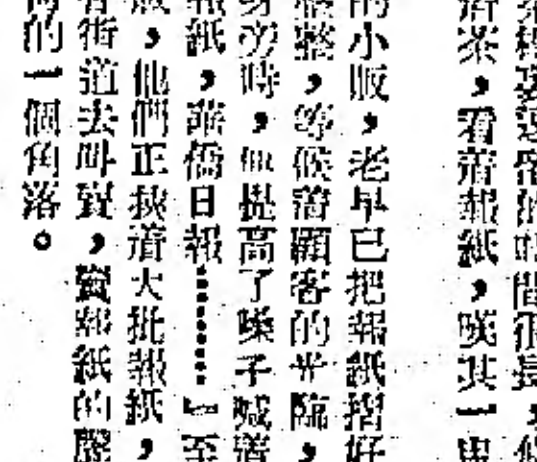 茶，看着報紙，嘆其一
的小販，老早已把報紙摺好
整整，等候着顧客的光臨，
身旁時，他提高了嗓子喊道
報紙，華僑日報………」至
，他們正挾着大批報紙，
着街道去叫賣，賣報紙的聲
的一個角落。